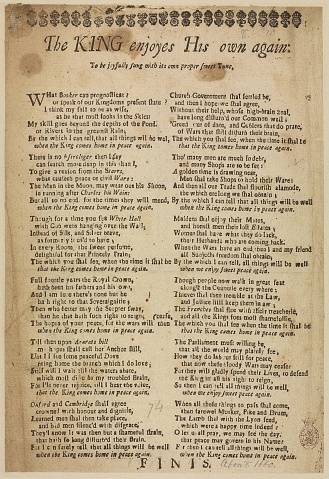 The KING enjoyes His own again:
To be joyfully sung with its own proper sweet Tune,
What Booker can prognosticate?
or speak of our Kingdoms present state?
I think my self to be as wise,
as he that most looks in the Skies:
My skill goes beyond the depths of the Pond,
or Rivers in the greatest Rain,
By the which I can tell, that all things will be well,
when the King comes home in peace again.
There is no Astrologer then I say
can search more deep in this than I,
To give a reason from the Starrs,
what causeth peace or civil Warrs:
The Man in the Moon, may wear out his Shoon,
in running after Charles his Waine
But all to no end, for the times they will mend,
when the King comes home in peace again.
Though for a time you see White Hall
with Cobwebs hanging over the Wall,
Instead of Silk, and Silver brave,
as formerly it us'd to have;
In every Room, the sweet perfume,
delightful for that Princely Train;
The which you shall see, when the time it shall be
that the King comes home in peace again.
Full fourty years the Royal Crown,
hath been his fathers and his own,
And I am sure there's none but he
hath right to that Soveraignty;
Then who better may the Scepter sway,
than he that hath such right to reign
The hopes of your peace, for the wars will then cease
when the King comes home in peace again.
Till then upon Ararats hill
my hope shall cast her Anchor still,
Untill I see some peaceful Dove
bring home the branch which I do love;
Still will I wait till the waters abate,
which most disturb my troubled Brain,
For I'le never rejoyce, till I hear the voice,
that the King comes home in peace again.
Oxford and Cambridge shall agree
crowned with honour and dignity,
Learned men shall then take place,
and bad men silenc'd with disgrace;
They'l know it was but a shameful strain,
that hath so long disturb'd their Brain.
For I can surely tell, that all things will be well
when the King comes home in peace again.
Church Government shall settled be,
and then I hope we shall agree,
Without their help, whose high-brain zeal,
have long disturb'd our Common weal;
Great out of date, and Coblers that do prate,
of Wars that still disturb their brain,
The which you shall see, when the time it shall be
that the King comes home in peace again.
Tho' many men are much in debt,
and many Shops are to be set;
A golden time is drawing near,
Men shall take Shops to hold their Ware:
And then all our Trade shall flourish alamode
the which ere long we shall obtain;
By the which I can tell that all things will be well
when the King comes home in peace again.
Maidens shall enjoy their Mates,
and honest men their lost Estates;
Women shall have what they do lack,
their Husbands who are coming back.
When the Wars have an end, then I and my friend
all Subjects freedom shall obtain,
By the which I can tell, all things will be well
when we enjoy sweet peace again.
Though people now walk in great fear
along the Countrie every where;
Thieves shall then tremble at the Law,
and Justice shall keep them in aw:
The Frenchies shall flee with their treacherie,
and all the Kings foes most shamefullie,
The which you shall see when the time it shall be
that the King comes home in peace again.
The Parliament must willing be,
that all the world may plainly see,
How they do labour still for peace,
that now these bloody Wars may cease
For they will gladly spend their Lives, to defend
the King in all his right to reign,
So then I can tell all things will be well,
when we enjoy sweet peace again.
When all these things to pass shall come,
then farewel Musket, Pike and Drum,
The Lamb shall with the Lyon feed,
which were a happy time indeed:
O let us all pray, we may see the day,
that peace may govern in his Name:
For then I can tell all things will be well,
when the King comes home in peace again.
FINIS.